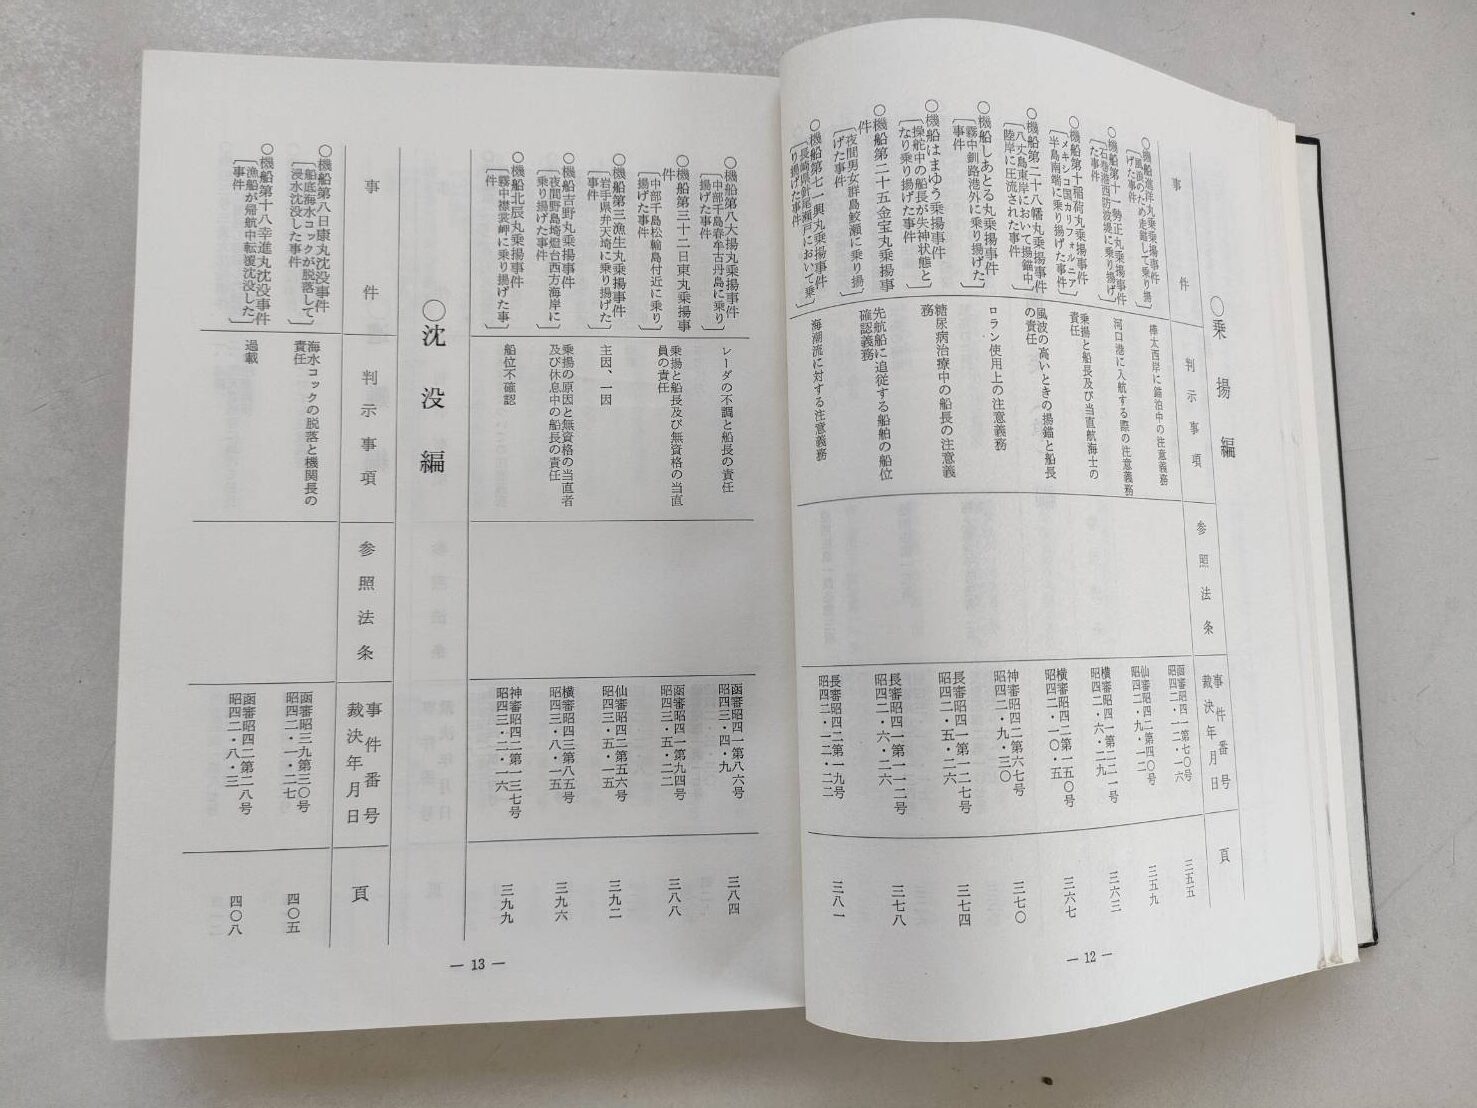 〇乗揚編
事件
判示事項
参照法条
事件番号
裁決年月日
頁
〇機船進洋丸乗揚事件
〔風浪のため走錨して乗り揚
げた事件〕
樺太西岸に錨泊中の注意義務
函審昭四一第七〇号
昭四二・二・一六
三五五
〇機船第十一勢正丸乗揚事件
〔石巻港西防波堤に乗り揚げ
た事件〕
河口港に入航する際の注意義務
仙審昭四二第四〇号
昭四二・九・一二
三五九
〇機船第十稲荷丸乗揚事件
〔メキシコ国カリフォルニア
半島南端に乗り揚げた事件〕
乗揚と船長及び当直航海士の
責任
横審昭四一第一二一号
昭四二・六・二九
三六三
〇機船第二十八幡丸乗揚事件
〔八丈島東岸において揚錨中
陸岸に圧流された事件〕
風波の高いときの揚錨と船長
の責任
横審昭四二第一五〇号
昭四二・一〇・五
三六七
〇機船しあとる丸乗揚事件
〔霧中釧路港外に乗り揚げた
事件〕
ロラン使用上の注意義務
神審昭四二第六七号
昭四二・九・三〇
三七〇
〇機船はまゆう乗揚事件
〔操舵中の船長が失神状態と
なり乗り揚げた事件〕
糖尿病治療中の船長の注意義
務
長審昭四一第一二七号
昭四二・五・二六
三七四
〇機船第二十五金宝丸乗揚事
件
〔夜間男女群島鮫瀬に乗り揚
げた事件〕
先航船に追従する船舶の船位
確認義務
長審昭四一第一一二号
昭四二・六・二六
三七八
〇機船第七一興丸乗揚事件
〔長崎県針尾瀬戸において乗
り揚げた事件〕
海潮流に対する注意義務
長審昭四二第一九号
昭四二・一二・二二
三八一
— 12 —
〇機船第八大揚丸乗揚事件
〔中部千島春牟古丹島に乗り
揚げた事件〕
レーダの不調と船長の責任
函審昭四一第八六号
昭四三・四・九
三八四
〇機船第三十二日東丸乗揚事
件
〔中部千島松輪島付近に乗り
揚げた事件〕
乗揚と船長及び無資格の当直
員の責任
函審昭四一第九四号
昭四三・五・二二
三八八
〇機船第三漁生丸乗揚事件
〔岩手県弁天埼に乗り揚げた
事件〕
主因、一因
仙審昭四二第五六号
昭四三・五・一五
三九二
〇機船吉野丸乗揚事件
〔夜間野島埼燈台西方海岸に
乗り揚げた事件〕
乗揚の原因と無資格の当直者
及び休息中の船長の責任
横審昭四三第八五号
昭四三・八・一五
三九六
〇機船北辰丸乗揚事件
〔霧中襟裳岬に乗り揚げた事
件〕
船位不確認
神審昭四二第一三七号
昭四三・二・一六
三九九
〇沈没編
事件
判示事項
参照法条
事件番号
裁決年月日
頁
〇機船第八日康丸沈没事件
〔船底海水コックが脱落して
浸水沈没した事件〕
海水コックの脱落と機関長の
責任
函審昭三九第三〇号
昭四二・一・二七
四〇五
〇機船第十八幸進丸沈没事件
〔漁船が帰航中転覆沈没した
事件〕
過載
函審昭四二第二八号
昭四二・八・三
四〇八
— 13 —